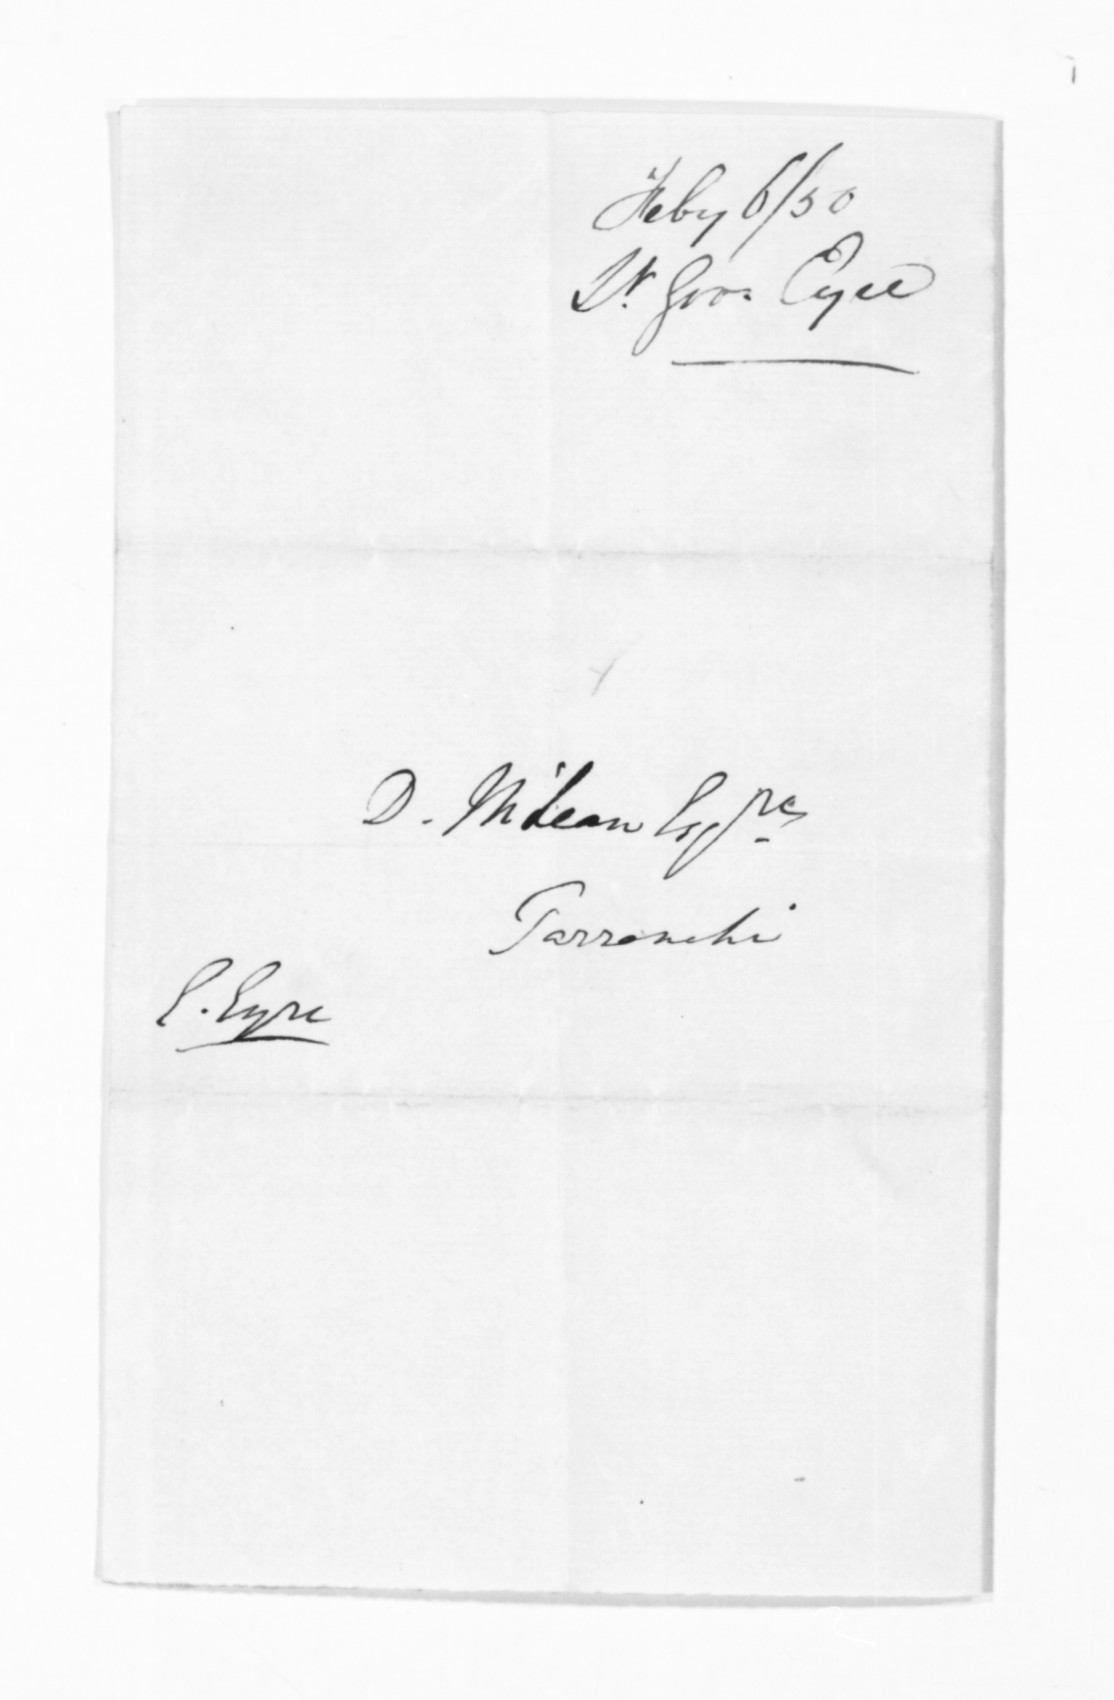 Feby 6/50
Lt. Govr Eyre
D. McLean Esqre
Tarrenaki
E. Eyre